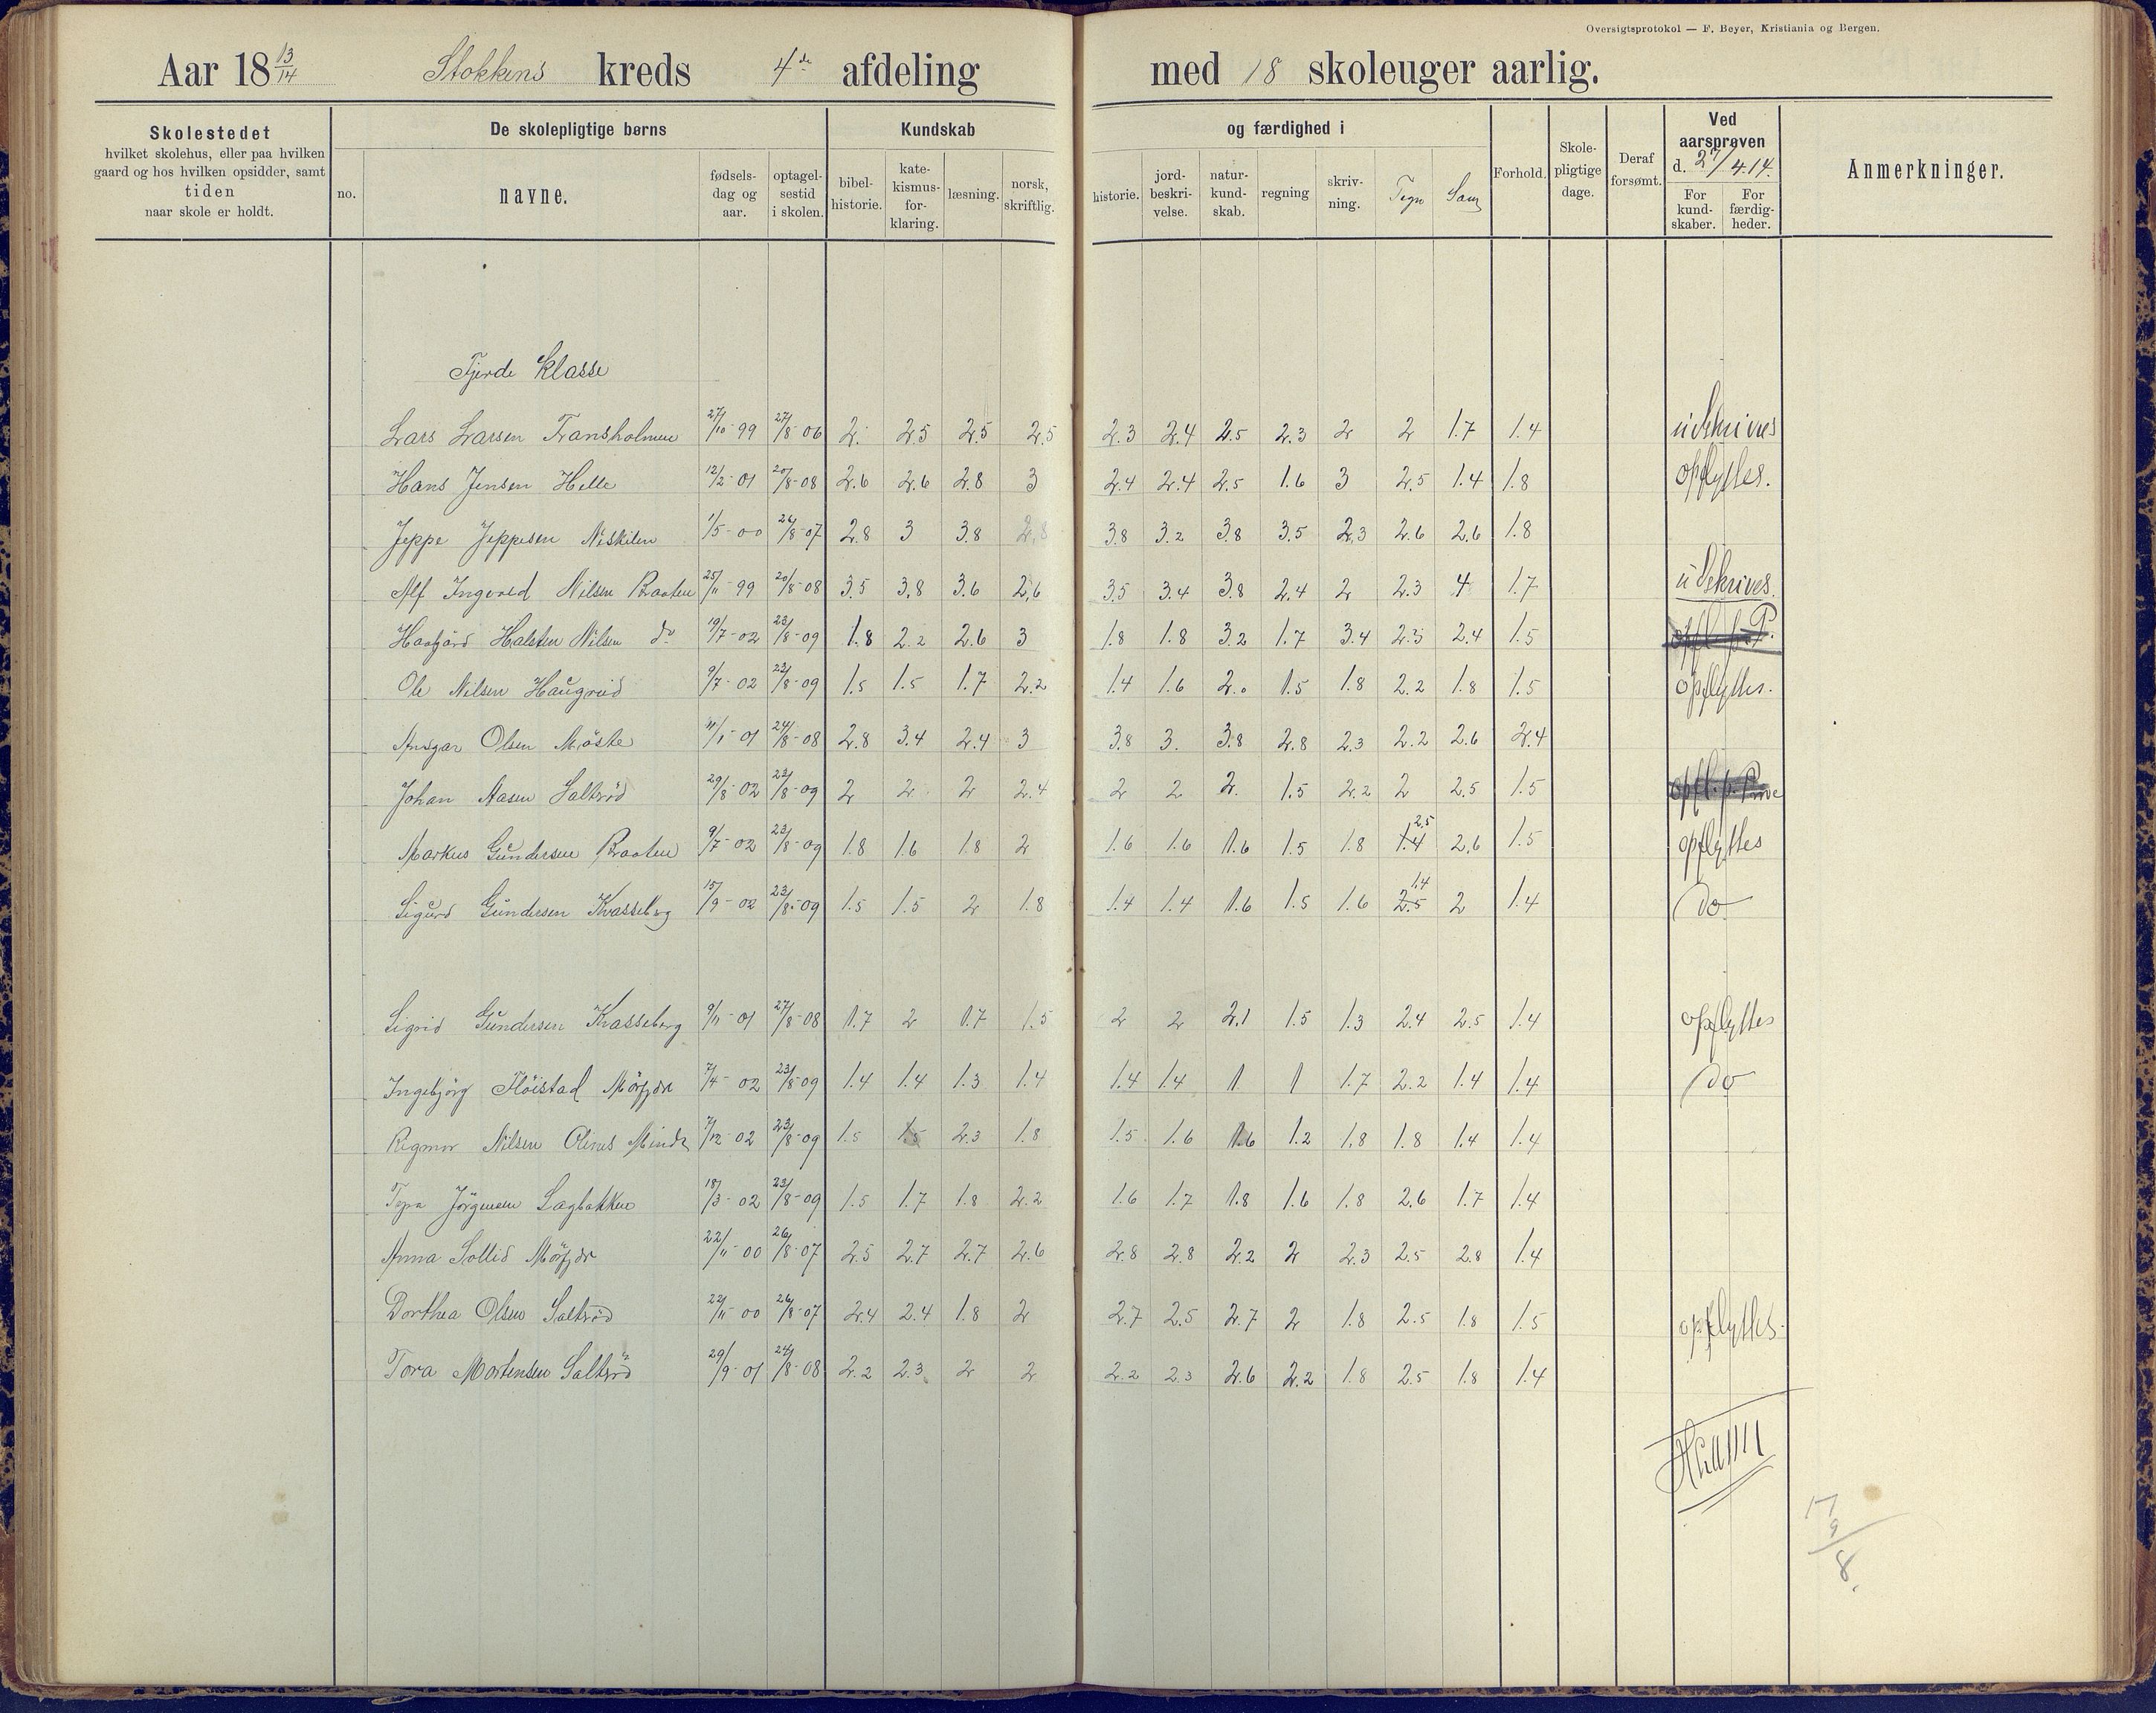 Oversigtsprotokol — F. Beyer, Kristiania og Bergen.
Aar 18 13/14 Stokkens kreds 4de afdeling med 18 skoleuger aarlig.
Skolestedet
hvilket skolehus, eller paa hvilken
gaard og hos hvilken opsidder, samt
tiden
naar skole er holdt.
De skolepligtige børns
no.
navne.
fødsels-
dag og
aar.
optagel-
sestid
i skolen.
Kundskab
bibel-
historie.
kate-
kismus-
for-
klaring.
læsning.
norsk,
skriftlig.
og færdighed i
historie.
jord-
beskri-
velse.
natur-
kund-
skab.
regning
skriv-
ning.
Tegn
Sang
Forhold.
Skole-
pligtige
dage.
Deraf
forsømt.
Ved
aarsprøven
d. 27/4.14.
For
kund-
skaber.
For
færdig-
heder.
Anmerkninger.
Fjerde klasse
Lars Larsen Fransholmen 27/10-99 27/8-06 2. 2.5 2.5 2.5 2.3 2.4 2.5 2.3 2 2 1.7 1.4 udskrives
Hans Jensen Helle 12/2-01 20/8-08 2.6 2.6 2.8 3 2.4 2.4 2.5 1.6 3 2.5 1.4 1.8 opflyttes.
Jeppe Jeppesen Neskilen 1/5-00 26/8-07 2.8 3 3.8 2.8 3.8 3.2 3.8 3.5 2.3 2.6 2.6 1.8
Alf Ingvald Nilsen Braaten 25/11-99 20/8-08 3.5 3.8 3.6 2.6 3.5 3.4 3.8 2.4 2 2.3 4 1.7 udskrives.
Halsten Nilsen do 19/7-02 23/8-09 1.8 2.2 2.6 3 1.8 1.8 3.2 1.7 3.4 2.5 2.4 1.5 opfl. p. P.
Ole Nilsen Haugerud 9/7-02 23/8-09 1.5 1.5 1.7 2.2 1.4 1.6 2.0 1.5 1.8 2.2 1.8 1.5 opflyttes.
Ansgar Olsen Møste 11/1-01 24/8-08 2.8 3.4 2.4 3 3.8 3. 3.8 2.8 2.3 2.2 2.6 2.4
Johan Aasen Saltrød 29/8-02 23/8-09 2 2 2 2.4 2 2 2. 1.5 2.2 2 2.5 1.5 opfl. p. Prøve
Markus Gundersen Braaten 9/7-02 23/8-09 1.8 1.6 1.8 2 1.6 1.6 1.6 1.5 1.8 1.4 2.5 2.6 1.5 opflyttes
Sigurd Gundersen Kvasseberg 15/9-02 23/8-09 1.5 1.5 2 1.8 1.4 1.4 1.6 1.5 1.6 2.5 1.4 2 1.4 do
Sigrid Gundersen Kvasseberg 9/11-01 27/8-08 1.7 2 1.7 1.5 2 2 2.1 1.5 1.3 2.4 2.5 1.4 opflyttes
Ingebjørg Fløistad Mørfjær 7/4-02 23/8-09 1.4 1.4 1.3 1.4 1.4 1.4 1 1 1.7 2.2 1.4 1.4 do
Regmor Nilsen Olines Minde 7/12-02 23/8-09 1.5 1.5 2.3 1.8 1.5 1.6 1.6 1.2 1.8 1.8 1.4 1.4
Jørgensen Lagbakken 18/3-02 23/8-09 1.5 1.7 1.8 2.2 1.6 1.7 1.8 1.6 1.8 2.6 1.7 1.4
Anna Sollid Mørfjær 22/11-00 26/8-07 2.5 2.7 2.7 2.6 2.8 2.8 2.2 2 2.3 2.5 2.8 1.4
Dorthea Olsen Saltrød 22/11-00 26/8-07 2.4 2.4 1.8 2 2.7 2.5 2.7 2 1.8 2.5 1.8 1.5 opflyttes.
Tora Mortensen Saltrød 29/9-01 24/8-08 2.2 2.3 2 2 2.2 2.3 2.6 2.2 1.8 2.5 1.8 1.4
17
9
8.